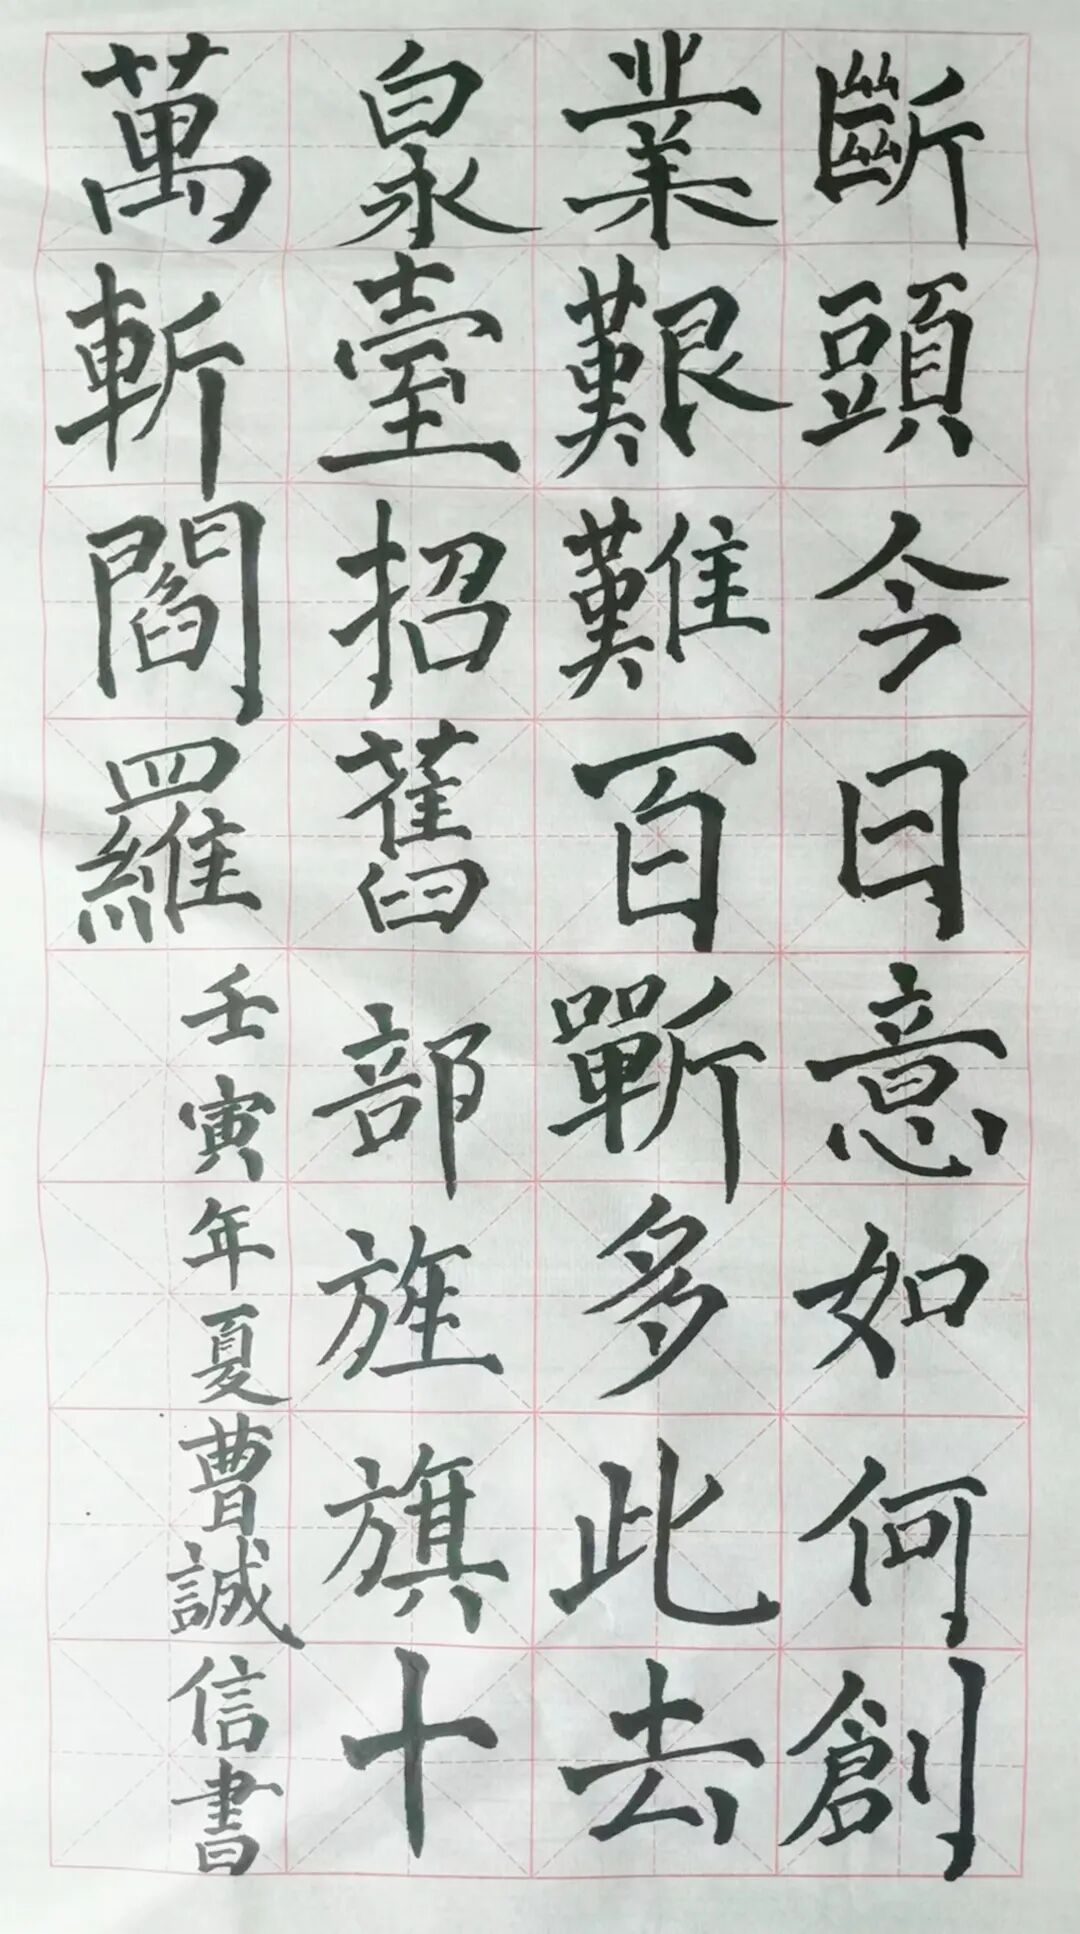 斷頭今日意如何創
業艱難百斬多此去
泉臺招舊部旌旗十
萬斬閻羅
壬寅年夏曹誠信書